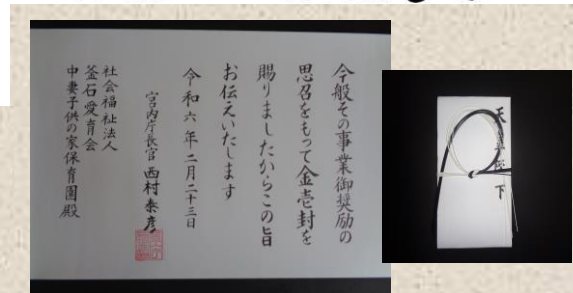 今般その事業御奨励の
思召をもって金壱封を
賜りましたからこの旨
お伝えいたします
令和六年二月二十三日
宮内庁長官 西村泰彦
社会福祉法人
釜石愛育会
中妻子供の家保育園殿
天
下